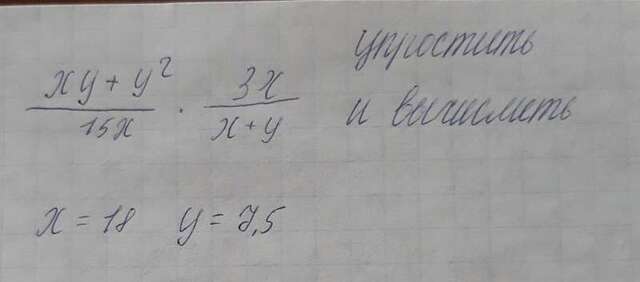 xy + y² / 15x · 3x / x + y
упростить
и вычислить
x = 18 y = 7,5